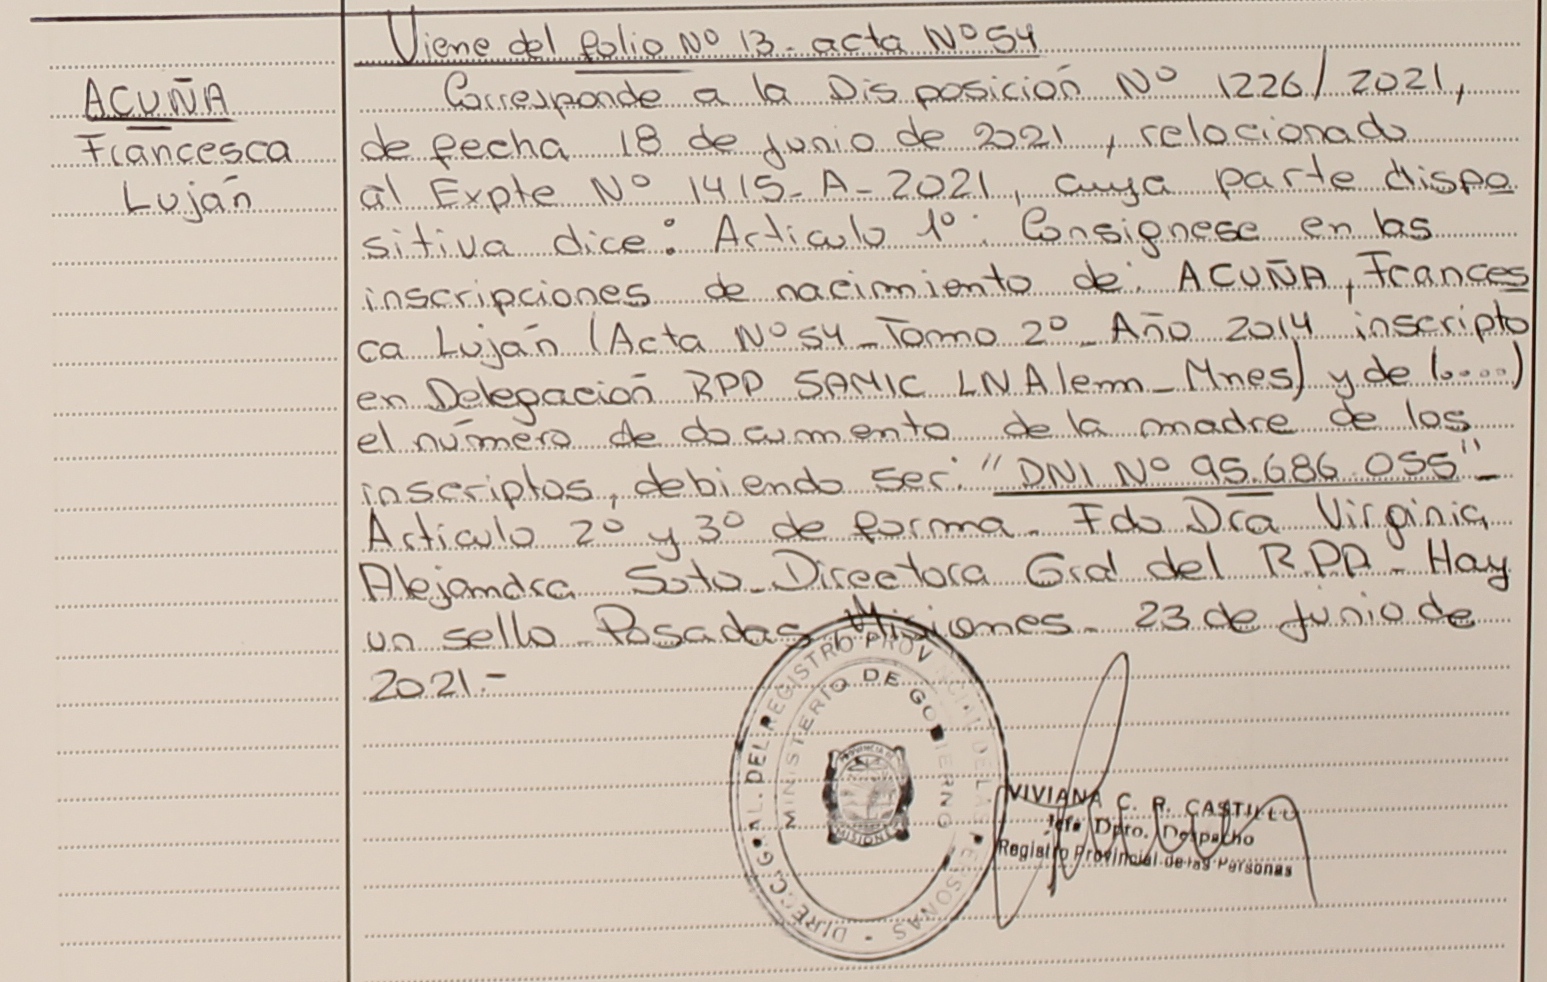 Viene del folio Nº 13 - acta Nº 54
ACUÑA
Francesca
Luján
Corresponde a la Disposición Nº 1226/2021,
de fecha 18 de junio de 2021, relacionado
al Expte Nº 1415-A-2021, cuya parte dispo
sitiva dice: Articulo 1º: Consignese en las
inscripciones de nacimiento de: ACUÑA, Frances
ca Luján (Acta Nº 54 - Tomo 2º - Año 2014 inscripto
en Delegación RPP SAMIC LNAlem - Mnes) y de (....)
el número de documento de la madre de los
inscriptos, debiendo ser: "DNI Nº 95.686.055"-
Articulo 2º y 3º de forma - Fdo Dra Virginia
Alejandra Soto - Directora Gral del R.P.P - Hay
un sello - Posadas Misiones - 23 de junio de
2021.-
DIRECC. GRAL. DEL REGISTRO PROVINCIAL DE LAS PERSONAS -
MINISTERIO DE GOBIERNO
PROVINCIA DE
MISIONES
VIVIANA C. R. CASTILLO
Jefe Dpto. Despacho
Registro Provincial de las Personas